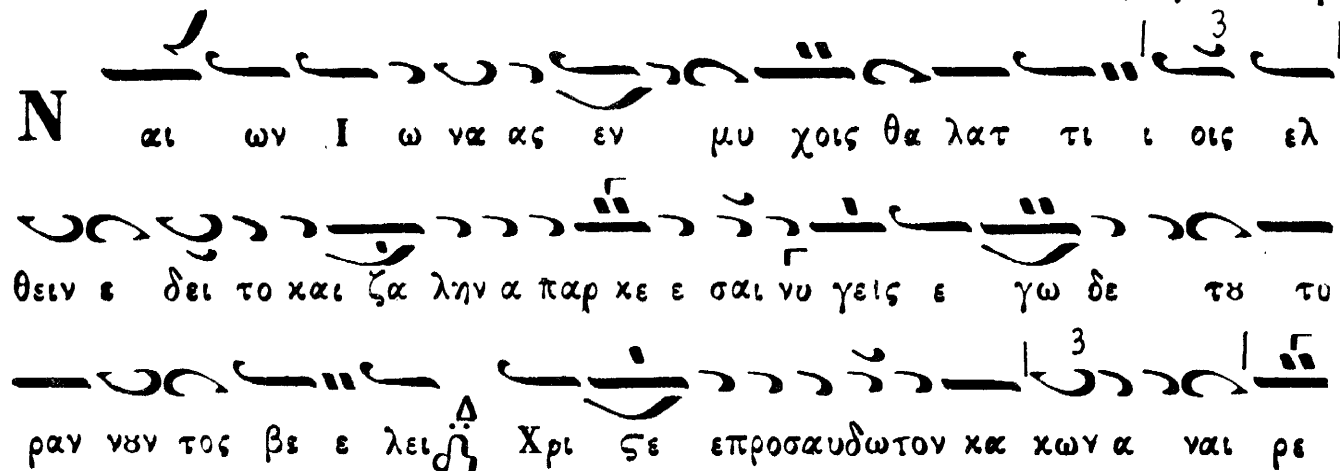 Ν αι ων Ι ω να ας εν μυ χοις θα λατ τι ι οις ελ
θειν ε δει το και ζα λην α παρ κε ε σαι νυ γεις ε γω δε τȣ τυ
ραν νȣν τος βε ε λει Δ Χρι ϛε επροσαυδωτον κα κων α ναι ρε